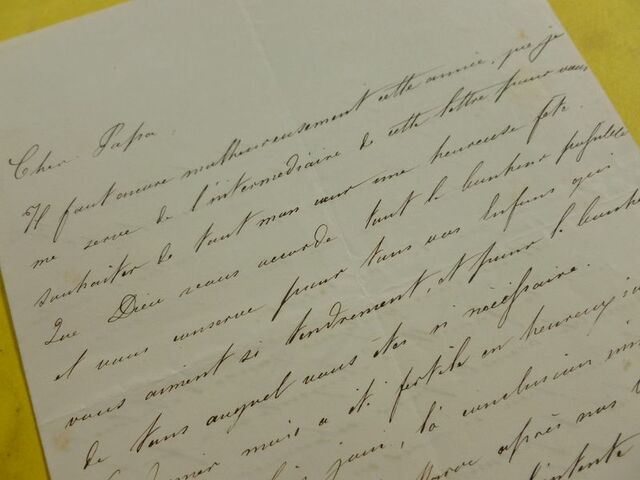 Cher Papa,
Il faut encore malheureusement cette année, que je
me serve de l'intermédiaire de cette lettre pour vous
souhaiter de tout mon cœur une heureuse fête.
Que Dieu vous accorde tout le bonheur possible
et vous conserve pour tous vos Enfans qui
vous aiment si tendrement, et pour le bonheur
de tous auquel vous êtes si nécessaire.
mois a été fertile en heureux
jour, la conclusion
après nos